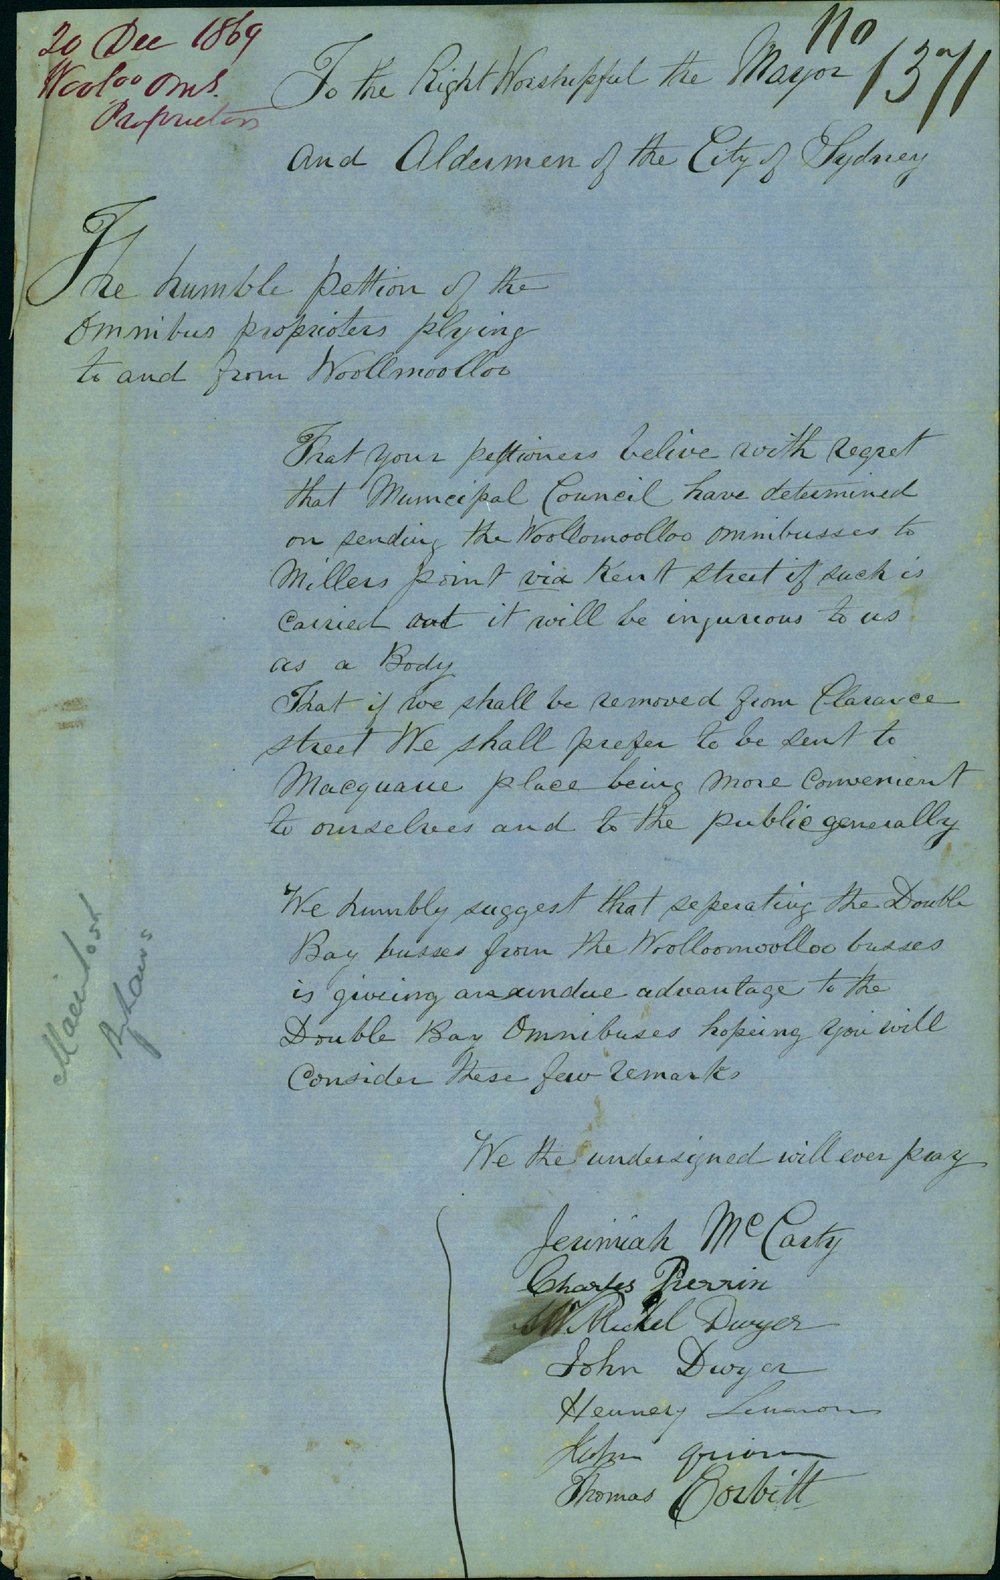 20 Dec 1869
Wooloo Oms.
Proprietors
No 1371
To the Right Worshipful the Mayor
and Aldermen of the City of Sydney
The humble pettion of the
Omnibus proprioters plying
to and from Woollmoolloo
That your pettioners belive with regret
that Muncipal Council have determined
on sending the Woollomoolloo omnibusses to
Millers point via Kent street if such is
Carried out it will be injurious to us
as a Body
That if we shall be removed from Clarance
street We shall prefer to be sent to
Macquarie place being more convenient
to ourselves and to the public generally
We humbly suggest that seperating the Double
Bay busses from the Woolloomoolloo busses
is giving an undue advantage to the
Double Bay Omnibuses hopeing you will
Consider these few remarks
We the undersigned will ever pray
Jerimiah McCarty
Charles Perrin
Michel Dwyer
John Dwyer
Hennery
John
Thomas Corbitt
Macintosh